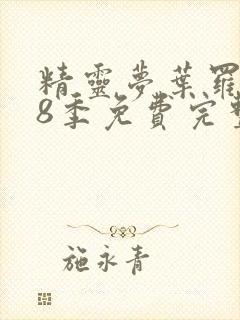 精靈夢葉羅
8季免費完整
施永青